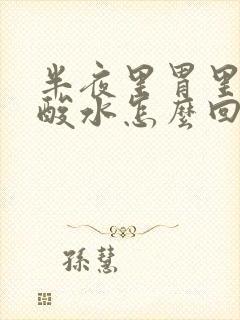 半夜里胃里
酸水怎麼回
孫慧